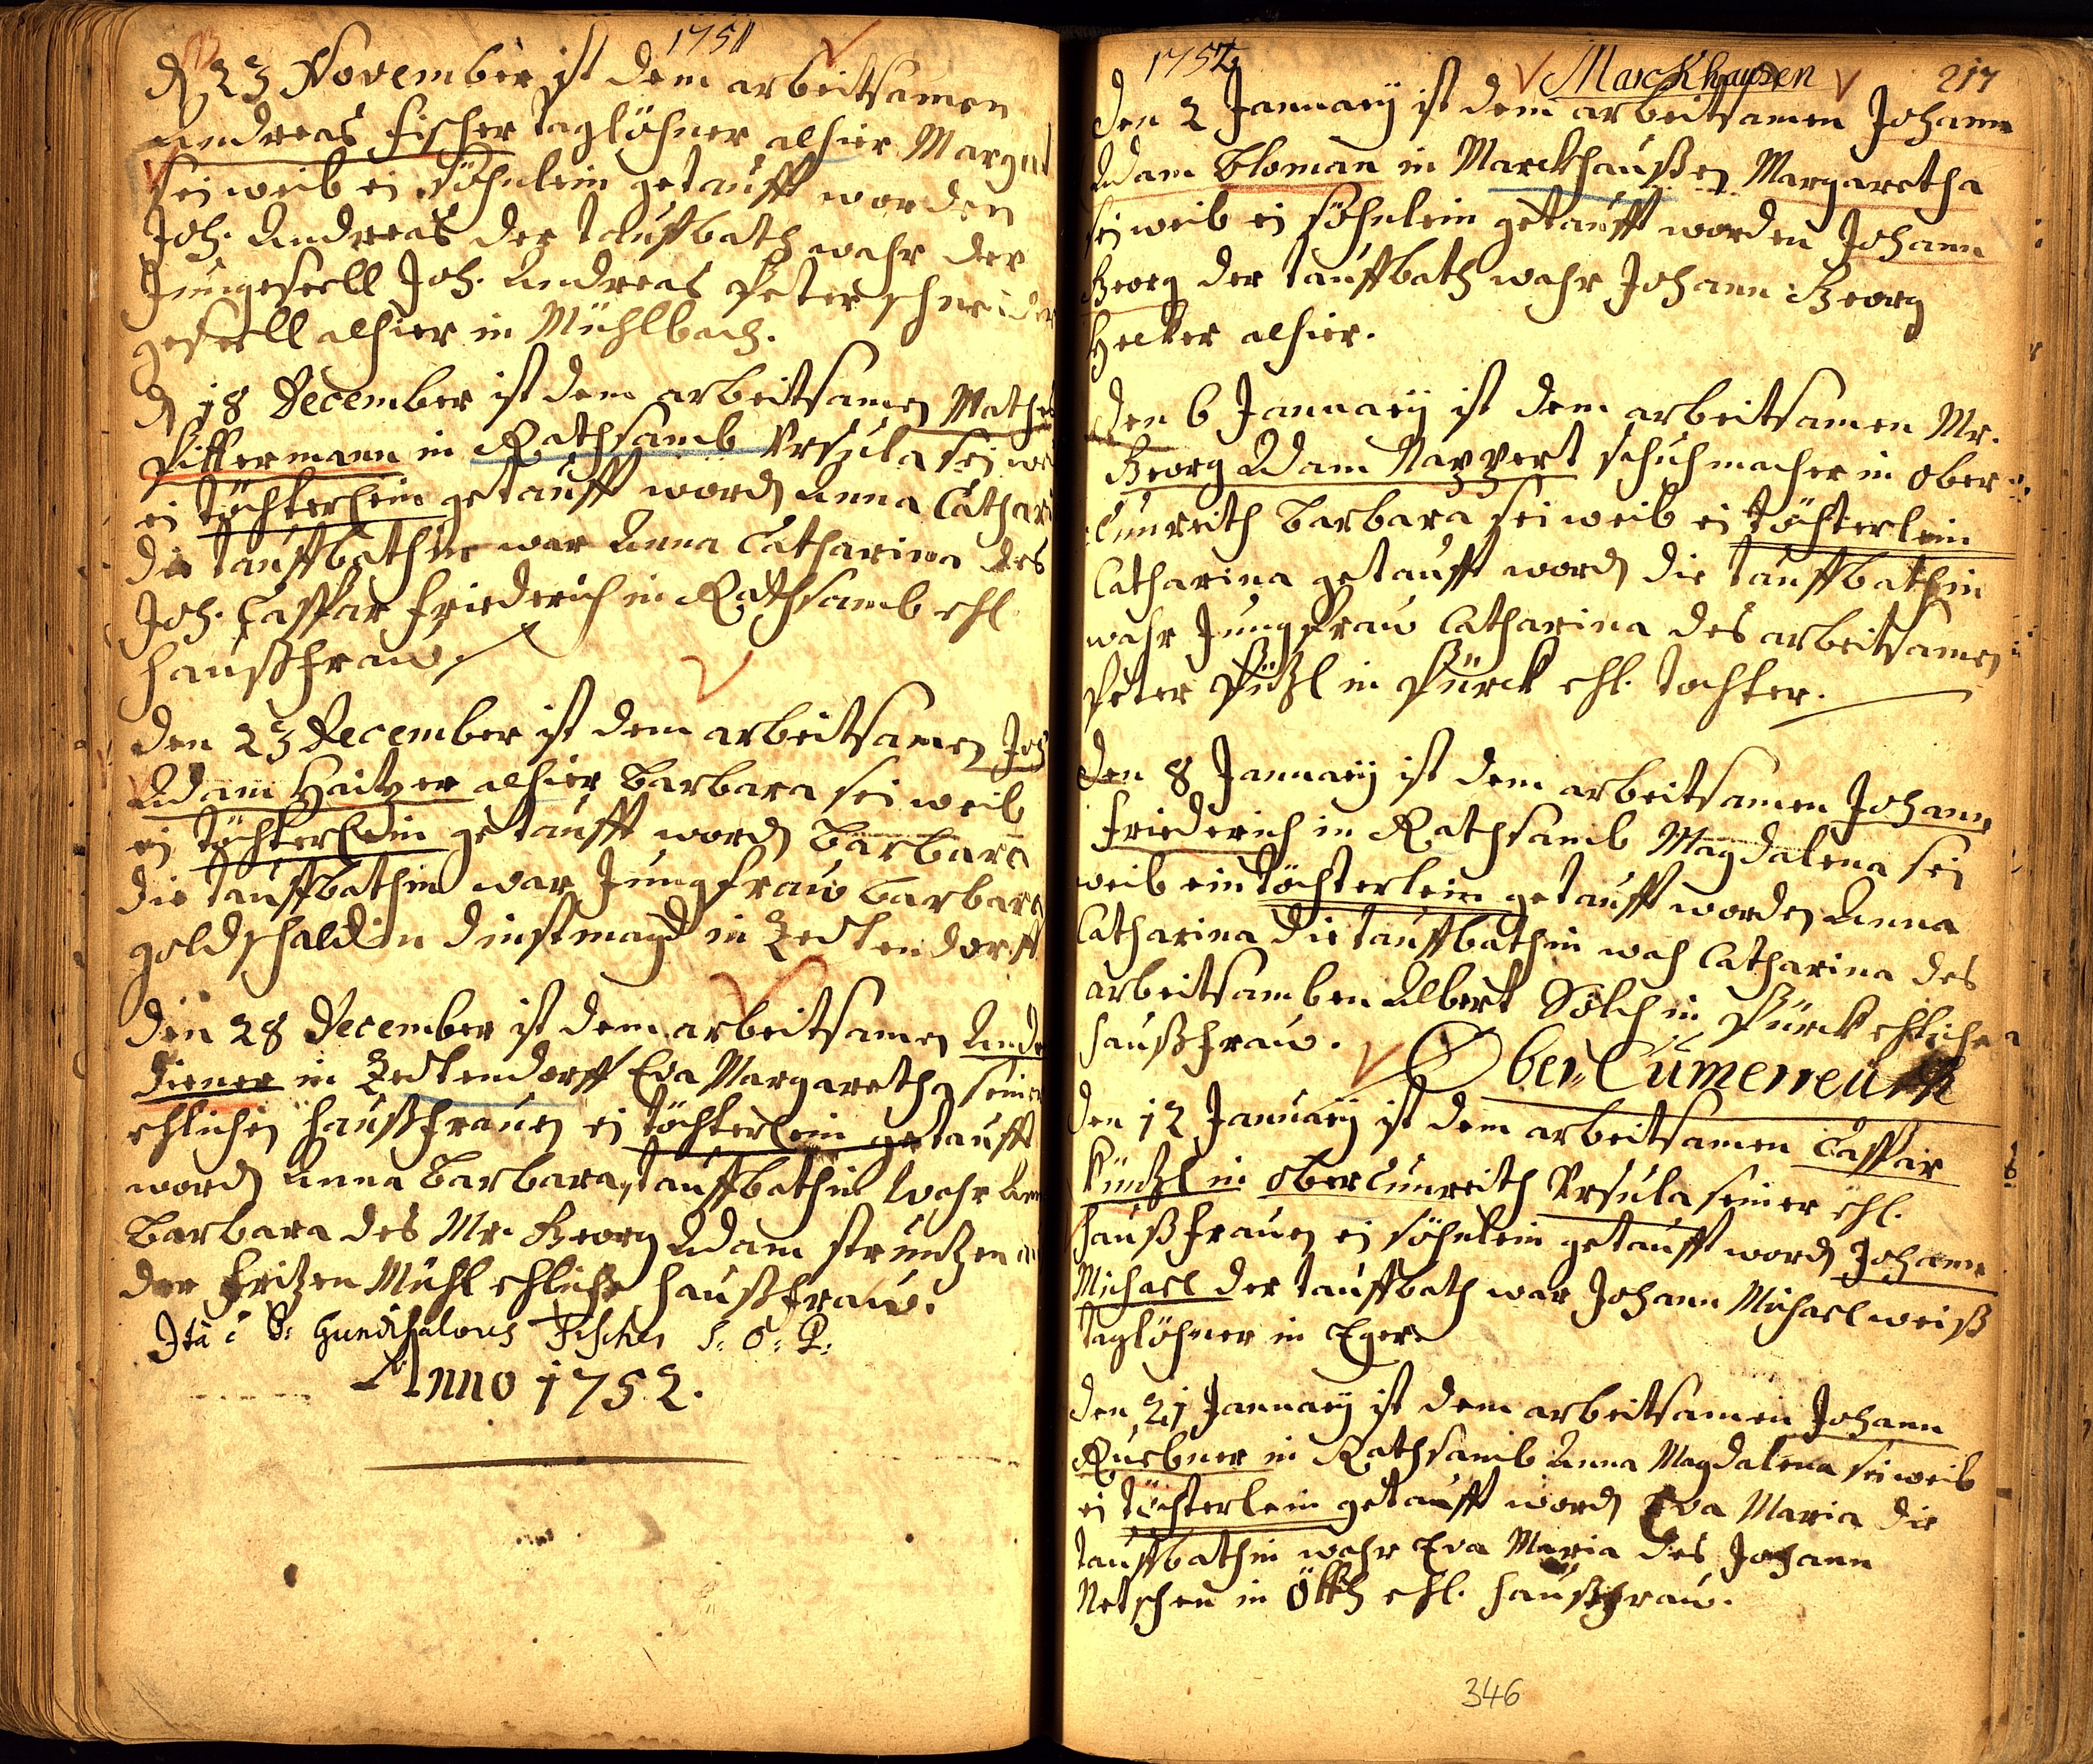 1751
d 23 November ist dem arbeitsamen
Andreas Fischer taglöhner alhier Marga
sei weib ei söhnlein getaufft worden
Joh. Andreas der tauffbath wahr der
Jungesell Joh. Andreas Peter schneider
gesell alhier in Mühlbach.
d 18 December ist dem arbeitsamen Mathes
Pittermann in Rathsamb Ursula sei we
ei töchterlein getaufft word Anna Cathari
die tauffbathin war Anna Catharina des
Joh. Casspar Friederich in Rathsamb ehl
haußfrau.
den 23 December ist dem arbeitsamen Joh
Adam Haitzer alhier Barbara sei weib
ei töchterlein getaufft word Barbara
die tauffbathin war Jungfrau Barbara
goldschaldin dinstmagd in Zedtendorff
den 28 December ist dem arbeitsamen Andr
Diener in Zedtendorff Eva Margaretha seiner
ehlichen haußfrauen ei töchterlein getaufft
word Anna Barbara, tauffbathin wahr Ann
Barbara des Mr. Georg Adam struntzen
der Fritzen Mühl ehliche haußfrau.
Ita è P: Gundisalvus Fischer S: O: P:
Anno 1752.
1752
Marckhausen
217
den 2 January ist dem arbeitsamen Johann
Adam Bloman in Marckhaußen Margaretha
sei weib ei söhnlein getaufft worden Johann
Georg der tauffbath wahr Johann Georg
Helker alhier.
den 6 January ist dem arbeitsamen Mr.
Georg Adam Nazzert schuhmacher in Ober
Cunreith Barbara sei weib ei töchterlein
Catharina getaufft word die tauffbathin
wahr Jungfrau Catharina des arbeitsamen
Peter Pützl in Pürck ehl. tochter.
den 8 January ist dem arbeitsamen Johann
Friederich in Rathsamb Magdalena sei
weib ein töchterlein getaufft worden Anna
Catharina die tauffbathin wah Catharina des
arbeitsamben Albert Sölch in Pürck ehliche
haußfrau.
Ober-Cumerreuth
den 12 January ist dem arbeitsamen Casspar
Küntzl in Obercunreith Ursula seiner ehl.
haußfrauen ei söhnlein getaufft word Johann
Michael der tauffbath war Johann Michael weiß
taglöhner in Eger
den 21 January ist dem arbeitsamen Johann
Ruebner in Rathsamb Anna Magdalena sei weib
ei töchterlein getaufft word Eva Maria die
tauffbathin wahr Eva Maria des Johann
Netschen in Ötth ehl. haußfrau.
346